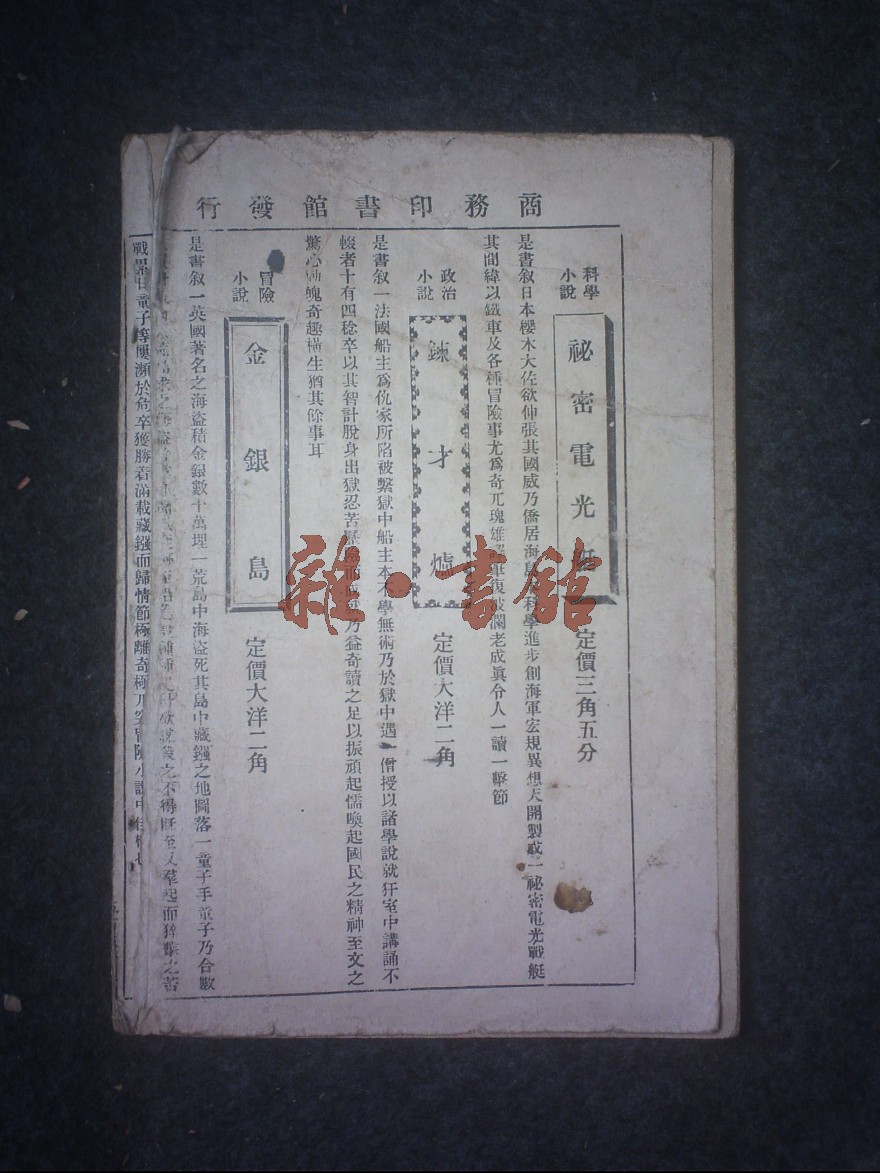 商務印書館發行
科學小說
祕密電光艇
定價三角五分
是書叙日本櫻木大佐欲伸張其國威乃僑居海島科學進步創海軍宏規異想天開製成一祕密電光戰艇
其間緯以鐵車及各種冒險事尤爲奇兀瑰雄復波瀾老成眞令人一讀一擊節
政治小說
鍊才爐
定價大洋二角
是書叙一法國船主爲仇家所陷被繫獄中船主本不學無術乃於獄中遇一僧授以諸學說就犴室中講誦不
輟者十有四稔卒以其智計脫身出獄忍苦而乃益奇讀之足以振頑起懦喚起國民之精神至文之
驚心動魄奇趣橫生猶其餘事耳
冒險小說
金銀島
定價大洋二角
是書叙一英國著名之海盜積金銀數十萬埋一荒島中海盜死其島中藏鏹之地圖落一童子手童子乃合數
之不得羣起而之苦
戰累日童子等屢瀕於危卒獲勝着滿載藏鏹而歸情節極離奇極冒險小說中
雜·書館